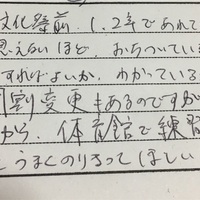 文化祭前、1、2年であれて
思えないほど、おちついている
すればよいか、わかっている
割変更もあるのですが
から、体育館で練習
うまくのりきって ほしい